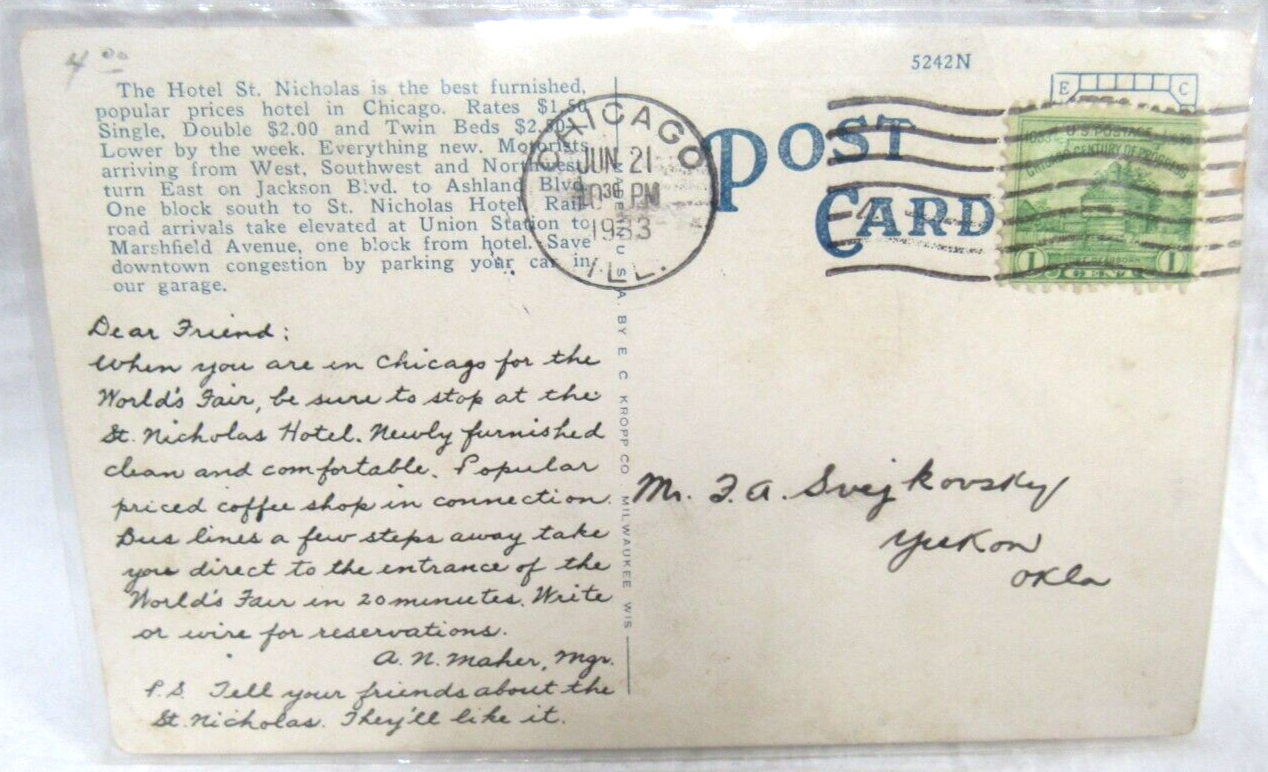 4 00
The Hotel St. Nicholas is the best furnished,
popular prices hotel in Chicago. Rates $1.50
Single, Double $2.00 and Twin Beds $2.50.
Lower by the week. Everything new. Motorists
arriving from West, Southwest and Northwest
turn East on Jackson Blvd. to Ashland Blvd
One block south to St. Nicholas Hotel. Rail
road arrivals take elevated at Union Station to
Marshfield Avenue, one block from hotel. Save
downtown congestion by parking your car in
our garage.
Dear Friend:
When you are in Chicago for the
World's Fair, be sure to stop at the
St. Nicholas Hotel. Newly furnished
clean and comfortable. Popular
priced coffee shop in connection.
Bus lines a few steps away take
you direct to the entrance of the
World's Fair in 20 minutes. Write
or wire for reservations.
A. N. Maher, Mgr.
P.S. Tell your friends about the
St. Nicholas. They'll like it.
U S A. BY E C KROPP CO MILWAUKEE WIS
CHICAGO
JUN 21
10 30 PM
1933
ILL.
5242N
E C
POST
CARD
U.S. POSTAGE
CENTURY OF PROGRESS
1 CENT 1
Mr. F. A. Svejkovsky
Yukon
Okla